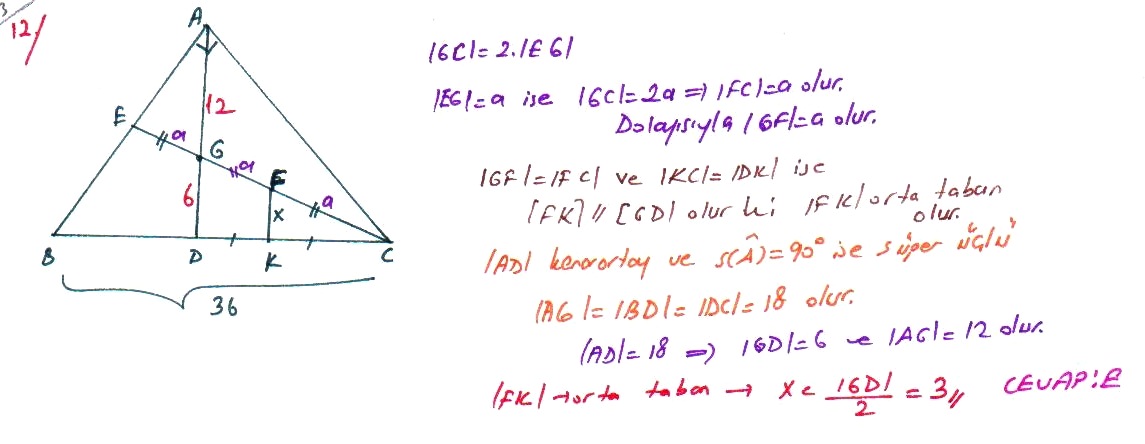 3
12/
A
12
E
a
G
a
6
E
x
a
B
D
K
C
36
|GC|=2.|EG|
|EG|=a ise |GC|=2a ⇒ |FC|=a olur.
Dolayısıyla |GF|=a olur.
|GF|=|FC| ve |KC|=|DK| ise
[FK] // [GD] olur ki |FK| orta taban
olur.
|AD| kenarortay ve s(Â)=90° ise süper üçlü
|AG|=|BD|=|DC|=18 olur.
|AD|=18 ⇒ |GD|=6 ve |AG|=12 olur.
|FK|→orta taban → x = |GD|/2 = 3// CEVAP:E